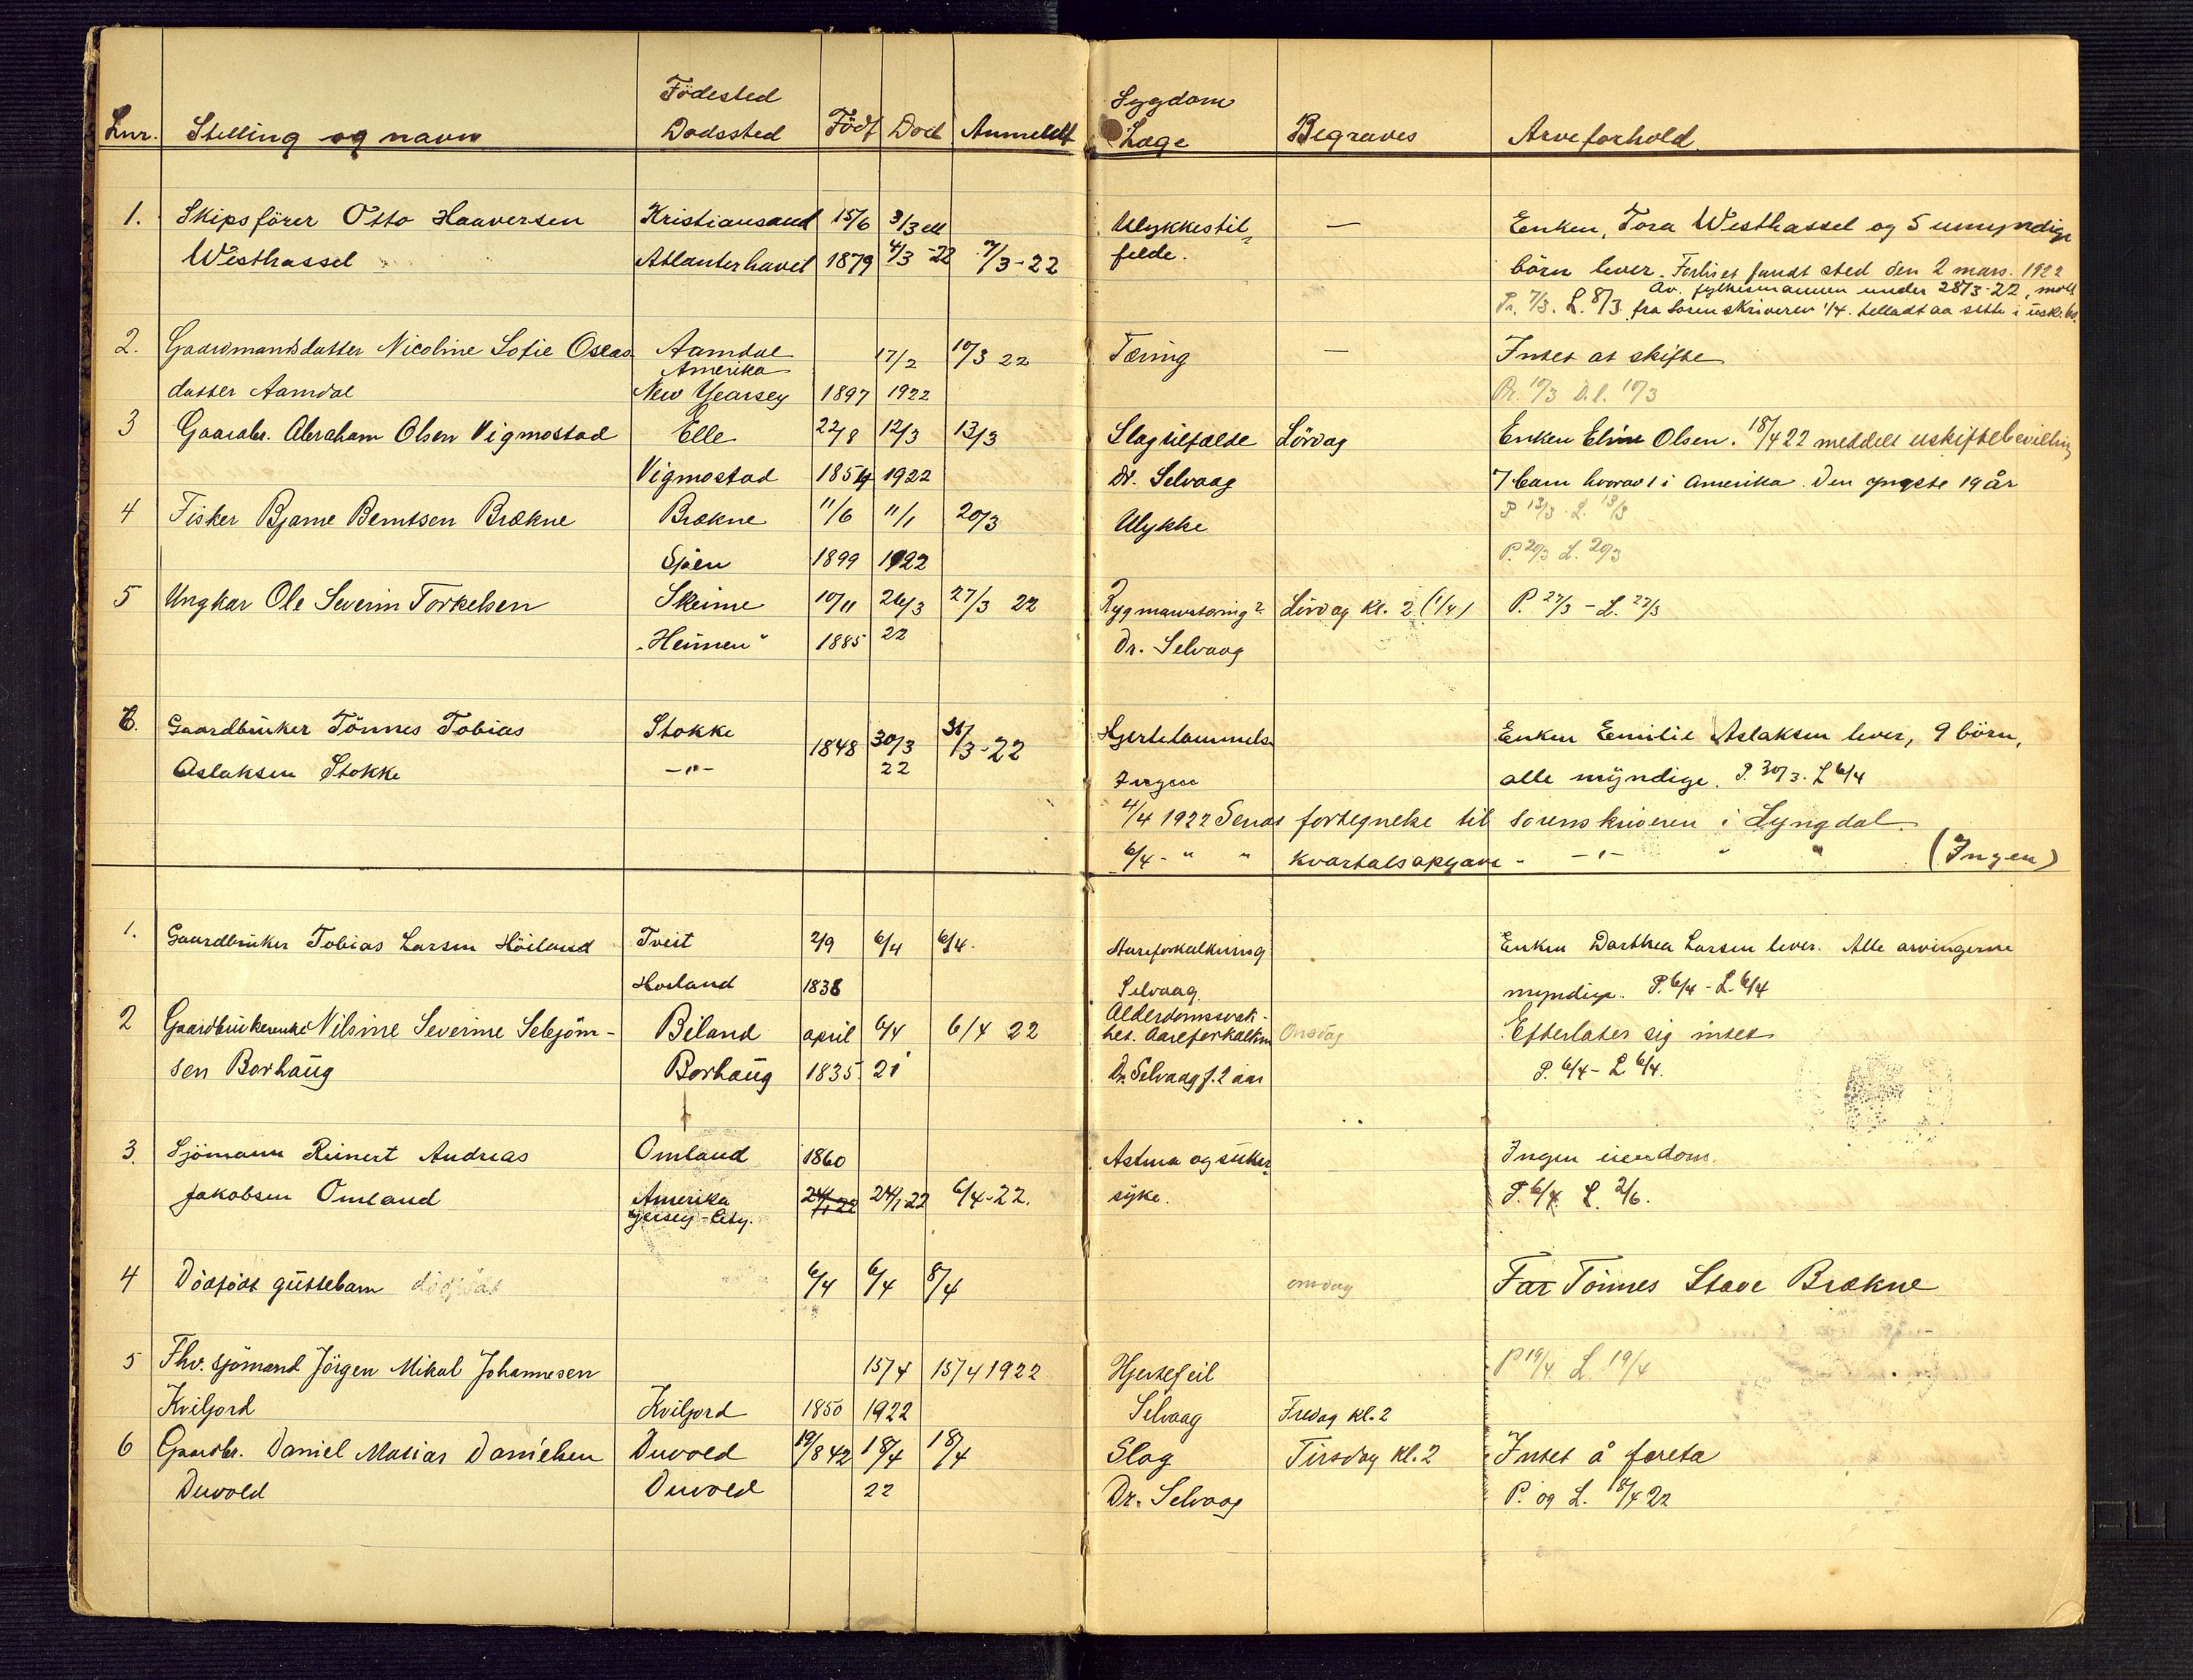 Lnr. Stelling og navn Födested Dödssted Född Död Anmeldt Sygdom Læge Begraves Arveforhold.
1. Skipsförer Otto Haaversen Kristiansand 15/6 3/3 ell Ulykkestil- — Enken, Tora Westhassel og 5 umyndige
Westhassel Atlanterhavet 1879 4/3 -22 7/3-22 felde. börn lever. Forliset fandt sted den 2 mars. 1922
Av. fylkesmannen under 28/3-22, medd.
Pr. 7/3. L. 8/3. fra Sorenskriveren 1/4. tilladt aa sitte i uskb. bo.
2. Gaardmandsdatter Nicoline Sofie Oseas Aamdal 17/2 10/3 22 Tæring — Intet at skifte
Amerika
datter Aamdal New Yearsey 1897 1922 Pr. 10/3 D.l. 10/3
3 Gaardbr. Abraham Olsen Vigmostad Elle 22/8 12/3 13/3 Slagtilfælde Lördag Enken Eline Olsen. 18/4 22 meddelt uskiftebevilling
Vigmostad 1854 1922 Dr. Selvaag 7 barn hvorav 1 i Amerika. Den yngste 19 år
4 Fisker Bjarne Berntsen Brækne Brækne 11/6 11/1 20/3 Ulykke P 13/3. L. 13/3
Sjöen 1899 1922 P. 20/3 L. 20/3
5 Ungkar Ole Severin Torkelsen Skeime 10/11 26/3 27/3 22 Rygmarvstæring? Lördag Kl. 2 (1/4) P. 27/3 - L. 27/3
"Heimen" 1885 22 Dr. Selvaag
6. Gaardbruker Tönnes Tobias Stokke 1848 30/3 31/3-22 Hjertelammelse Enken Emilie Aslaksen lever, 9 börn,
Aslaksen Stokke -"- 22 Ingen alle myndige. P. 30/3. L 6/4
4/4 1922 Sendt fortegnelse til sorenskriveren i Lyngdal.
6/4 - " " kvartalsopgave - -"- " " (Ingen)
1. Gaardbruker Tobias Larsen Höiland Tveit 2/9 6/4 6/4. Aareforkalkning Enken Darthea Larsen lever. Alle arvingerne
Hoiland 1838 Selvaag. myndige. P. 6/4 - L. 6/4
2 Gaardbrukerenke Nilsine Severine Sebjörn- Biland april 6/4 6/4 22 Alderdomssvak-
het. Aareforkalkn Onsdag Efterlater sig intet
sen Borhaug Borhaug 1835 21 Dr. Selvaag f. 2 aar P. 6/4 - L 6/4.
3. Sjömann Reinert Andreas Omland 1860 Astma og suker- Ingen eiendom.
Jakobsen Omland Amerika 24/1 22 24/1 22 6/4-22. syke. P. 6/4. L. 2/6.
Yersey-City.
4 Dödfödt guttebarn dödfödt 6/4 6/4 8/4 onsdag Far Tönnes Stave Brækne
5 Fhv. sjömand Jörgen Mikal Johannesen 15/4 15/4 1922 Hjertefeil P 19/4 L 19/4
Kviljord Kviljord 1850 1922 Selvaag Fredag kl. 2
6 Gaardbr. Daniel Matias Danielsen Duvold 19/8 42 18/4 18/4 Slag Tirsdag kl. 2 Intet å foreta
Duvold Duvold 22 Dr. Selvaag P. og L. 18/4 22